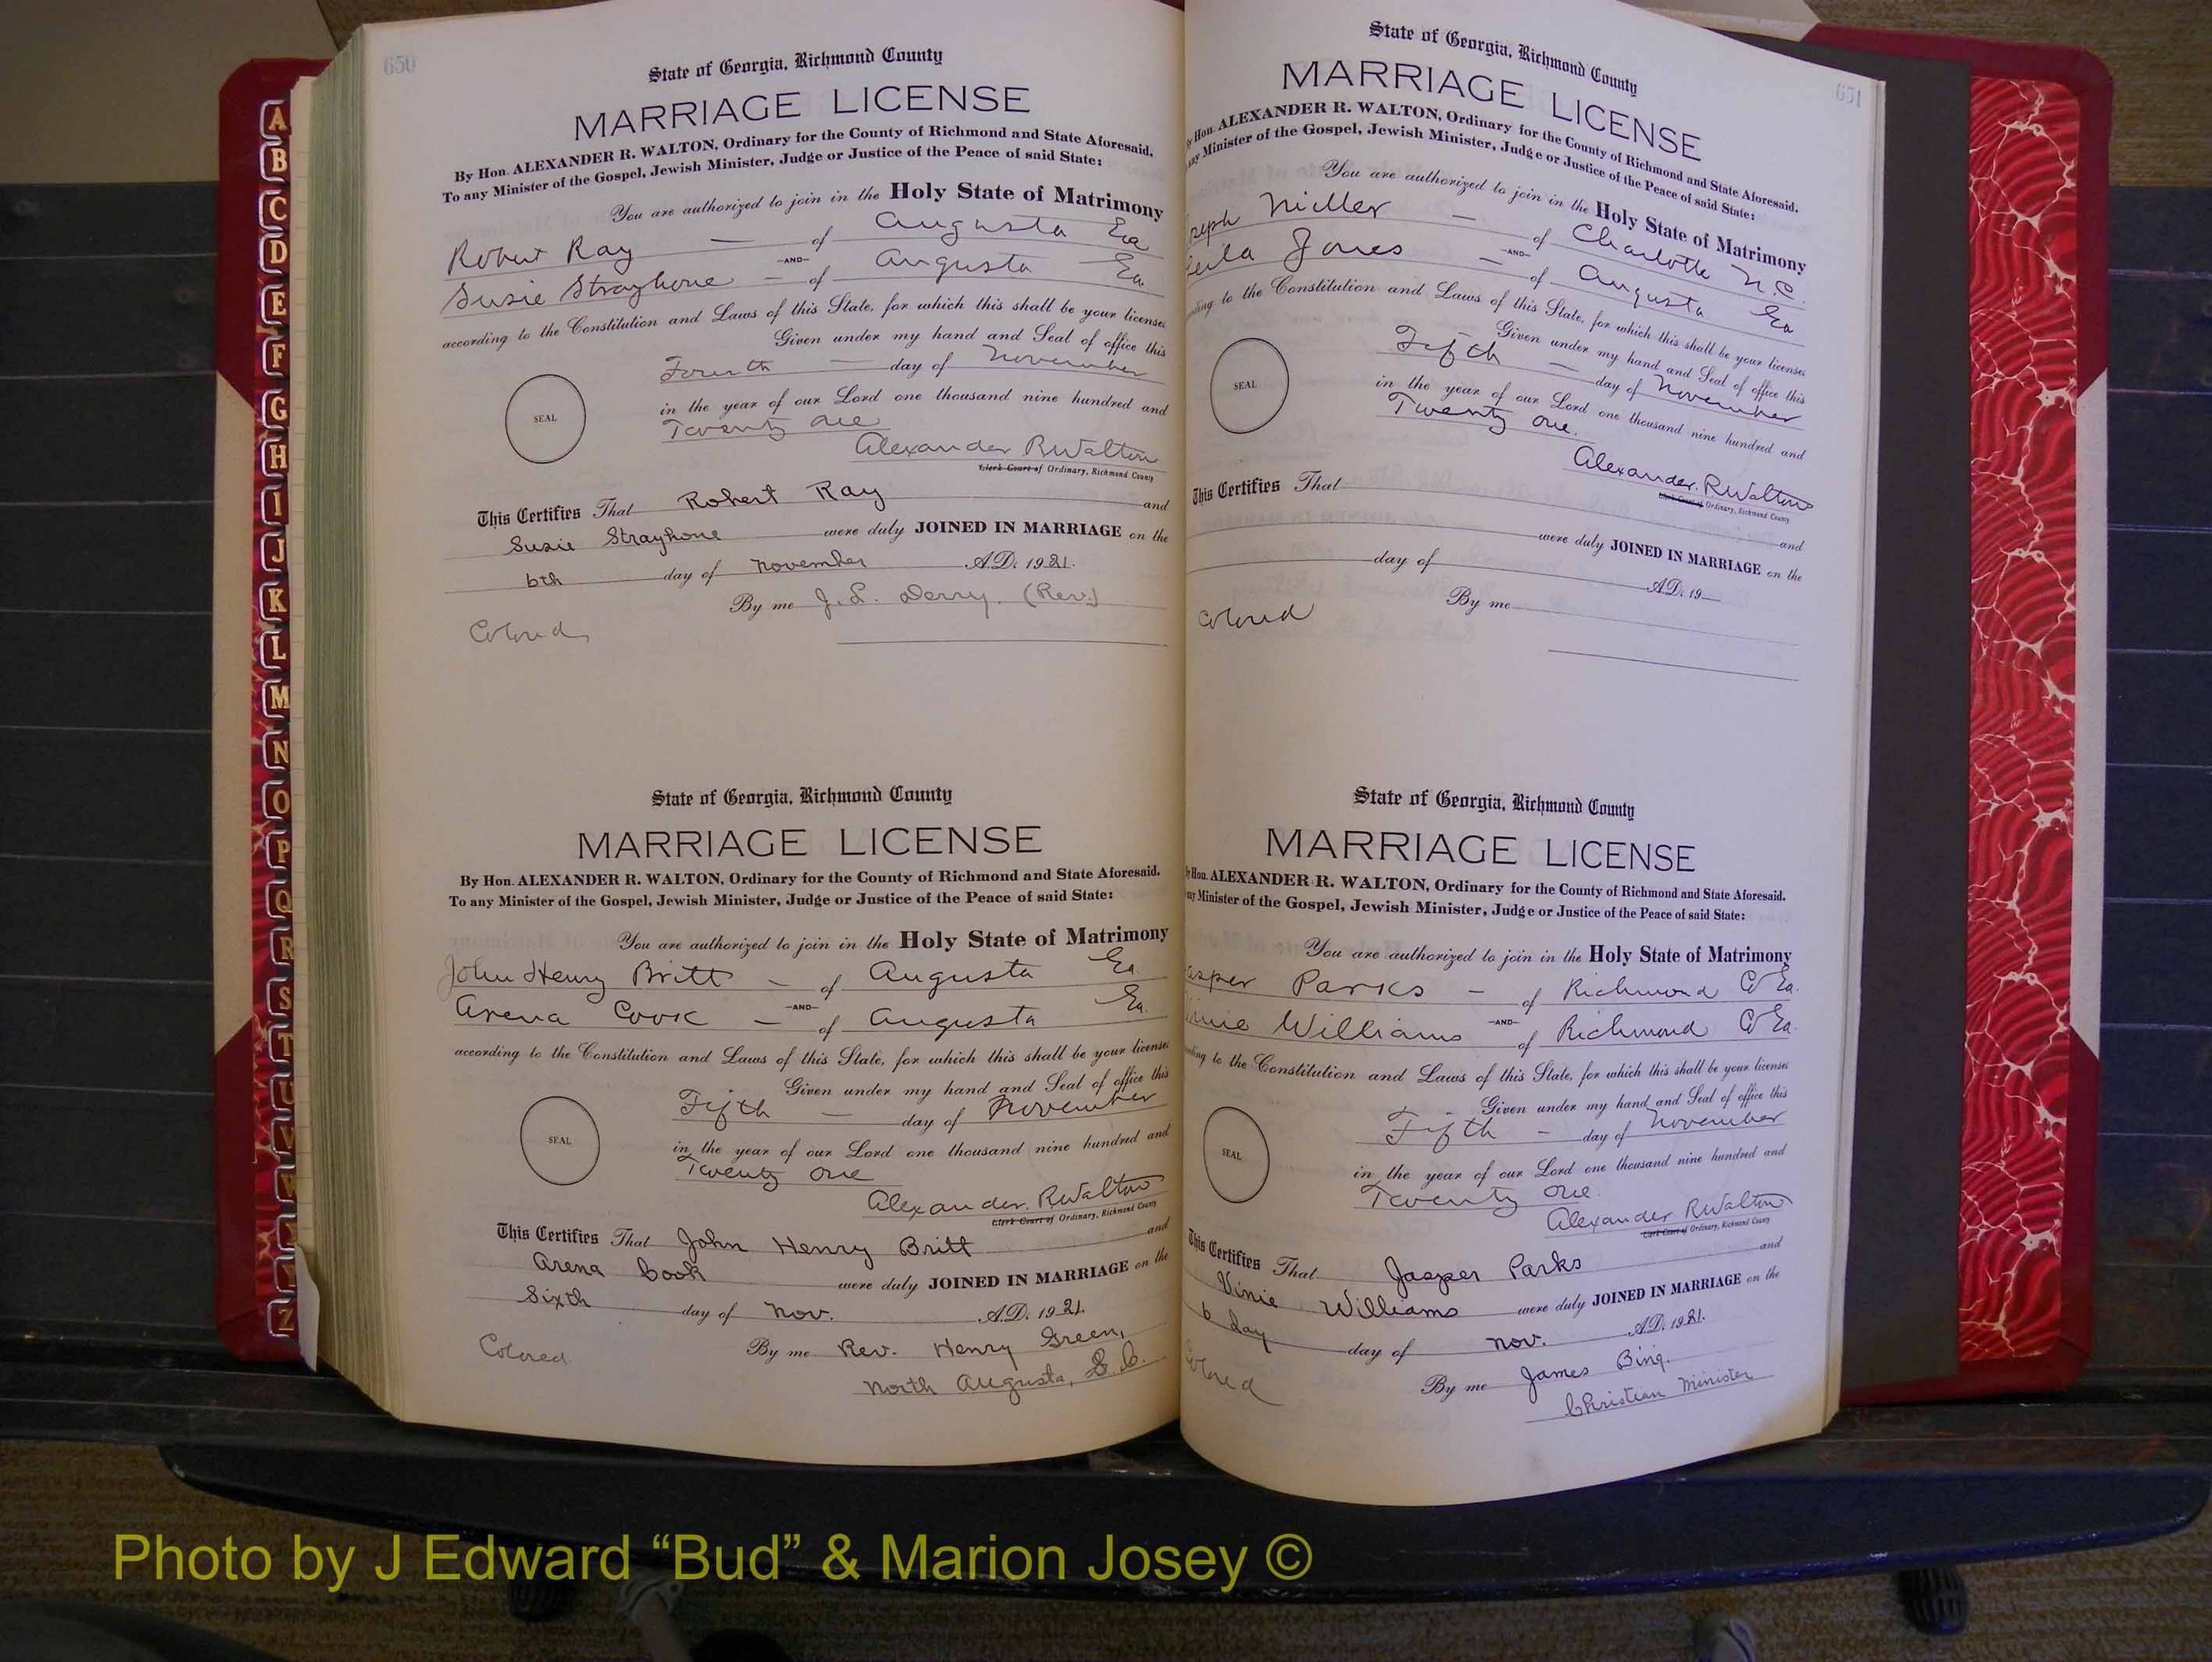 650
State of Georgia, Richmond County
MARRIAGE LICENSE
By Hon. ALEXANDER R. WALTON, Ordinary for the County of Richmond and State Aforesaid.
To any Minister of the Gospel, Jewish Minister, Judge or Justice of the Peace of said State:
You are authorized to join in the Holy State of Matrimony
Robert Ray — of Augusta Ga
-AND-
Susie Strayhorne — of Augusta Ga.
according to the Constitution and Laws of this State, for which this shall be your license
Given under my hand and Seal of office this
Fourth — day of November
SEAL
in the year of our Lord one thousand nine hundred and
Twenty one
Alexander R Walton
Clerk Court of Ordinary, Richmond County
This Certifies That Robert Ray and
Susie Strayhone were duly JOINED IN MARRIAGE on the
6th day of November A.D. 1921.
By me J. L. Derry. (Rev.)
Colored
State of Georgia, Richmond County
MARRIAGE LICENSE
By Hon. ALEXANDER R. WALTON, Ordinary for the County of Richmond and State Aforesaid.
To any Minister of the Gospel, Jewish Minister, Judge or Justice of the Peace of said State:
You are authorized to join in the Holy State of Matrimony
John Henry Britt — of Augusta Ga
-AND-
Arena Cook — of Augusta Ga.
according to the Constitution and Laws of this State, for which this shall be your license
Given under my hand and Seal of office this
Fifth — day of November
SEAL
in the year of our Lord one thousand nine hundred and
Twenty one
Alexander. R Walton
Clerk Court of Ordinary, Richmond County
This Certifies That John Henry Britt and
Arena Cook were duly JOINED IN MARRIAGE on the
Sixth day of Nov. A.D. 1921.
By me Rev. Henry Green,
Colored
North Augusta, S.C.
651
State of Georgia, Richmond County
MARRIAGE LICENSE
By Hon. ALEXANDER R. WALTON, Ordinary for the County of Richmond and State Aforesaid.
any Minister of the Gospel, Jewish Minister, Judge or Justice of the Peace of said State:
You are authorized to join in the Holy State of Matrimony
seph Miller — of Charlotte N.C.
-AND-
eila Jones — of Augusta Ga
ording to the Constitution and Laws of this State, for which this shall be your license
Given under my hand and Seal of office this
Fifth — day of November
SEAL
in the year of our Lord one thousand nine hundred and
Twenty one.
Alexander. R Walton
Clerk Court of Ordinary, Richmond County
This Certifies That and
were duly JOINED IN MARRIAGE on the
day of A.D. 19
By me
Colored
State of Georgia, Richmond County
MARRIAGE LICENSE
By Hon. ALEXANDER R. WALTON, Ordinary for the County of Richmond and State Aforesaid.
any Minister of the Gospel, Jewish Minister, Judge or Justice of the Peace of said State:
You are authorized to join in the Holy State of Matrimony
asper Parks — of Richmond Co Ga.
-AND-
inie Williams of Richmond Co Ga.
ording to the Constitution and Laws of this State, for which this shall be your license
Given under my hand and Seal of office this
Fifth — day of November
SEAL
in the year of our Lord one thousand nine hundred and
Twenty one.
Alexander R Walton
Clerk Court of Ordinary, Richmond County
This Certifies That Jasper Parks and
Vinie Williams were duly JOINED IN MARRIAGE on the
6 day day of Nov. A.D. 1921.
By me James Bing.
Colored
Christian Minister
A
B
C
D
E
F
G
H
I
J
K
L
M
N
O
P
Q
R
S
T
U
V
W
X
Y
Z
Photo by J Edward “Bud” & Marion Josey ©